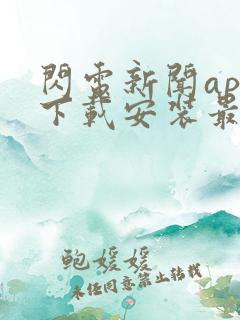 閃電新聞ap
下載安裝最
鮑媛媛
未经同意禁止转载